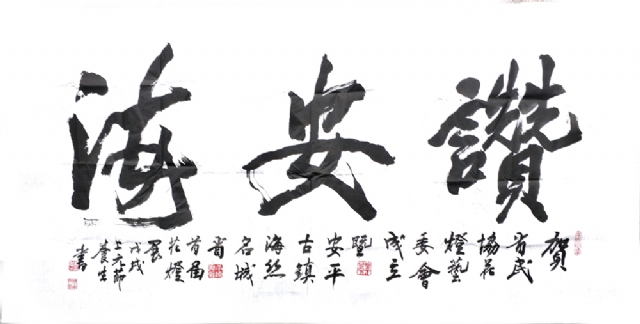 讚安海
賀
省民
協花
燈藝
委會
成立
暨
安平
古鎮
海絲
名城
省
首届
花燈
展
戊戌
上元節
養生
書